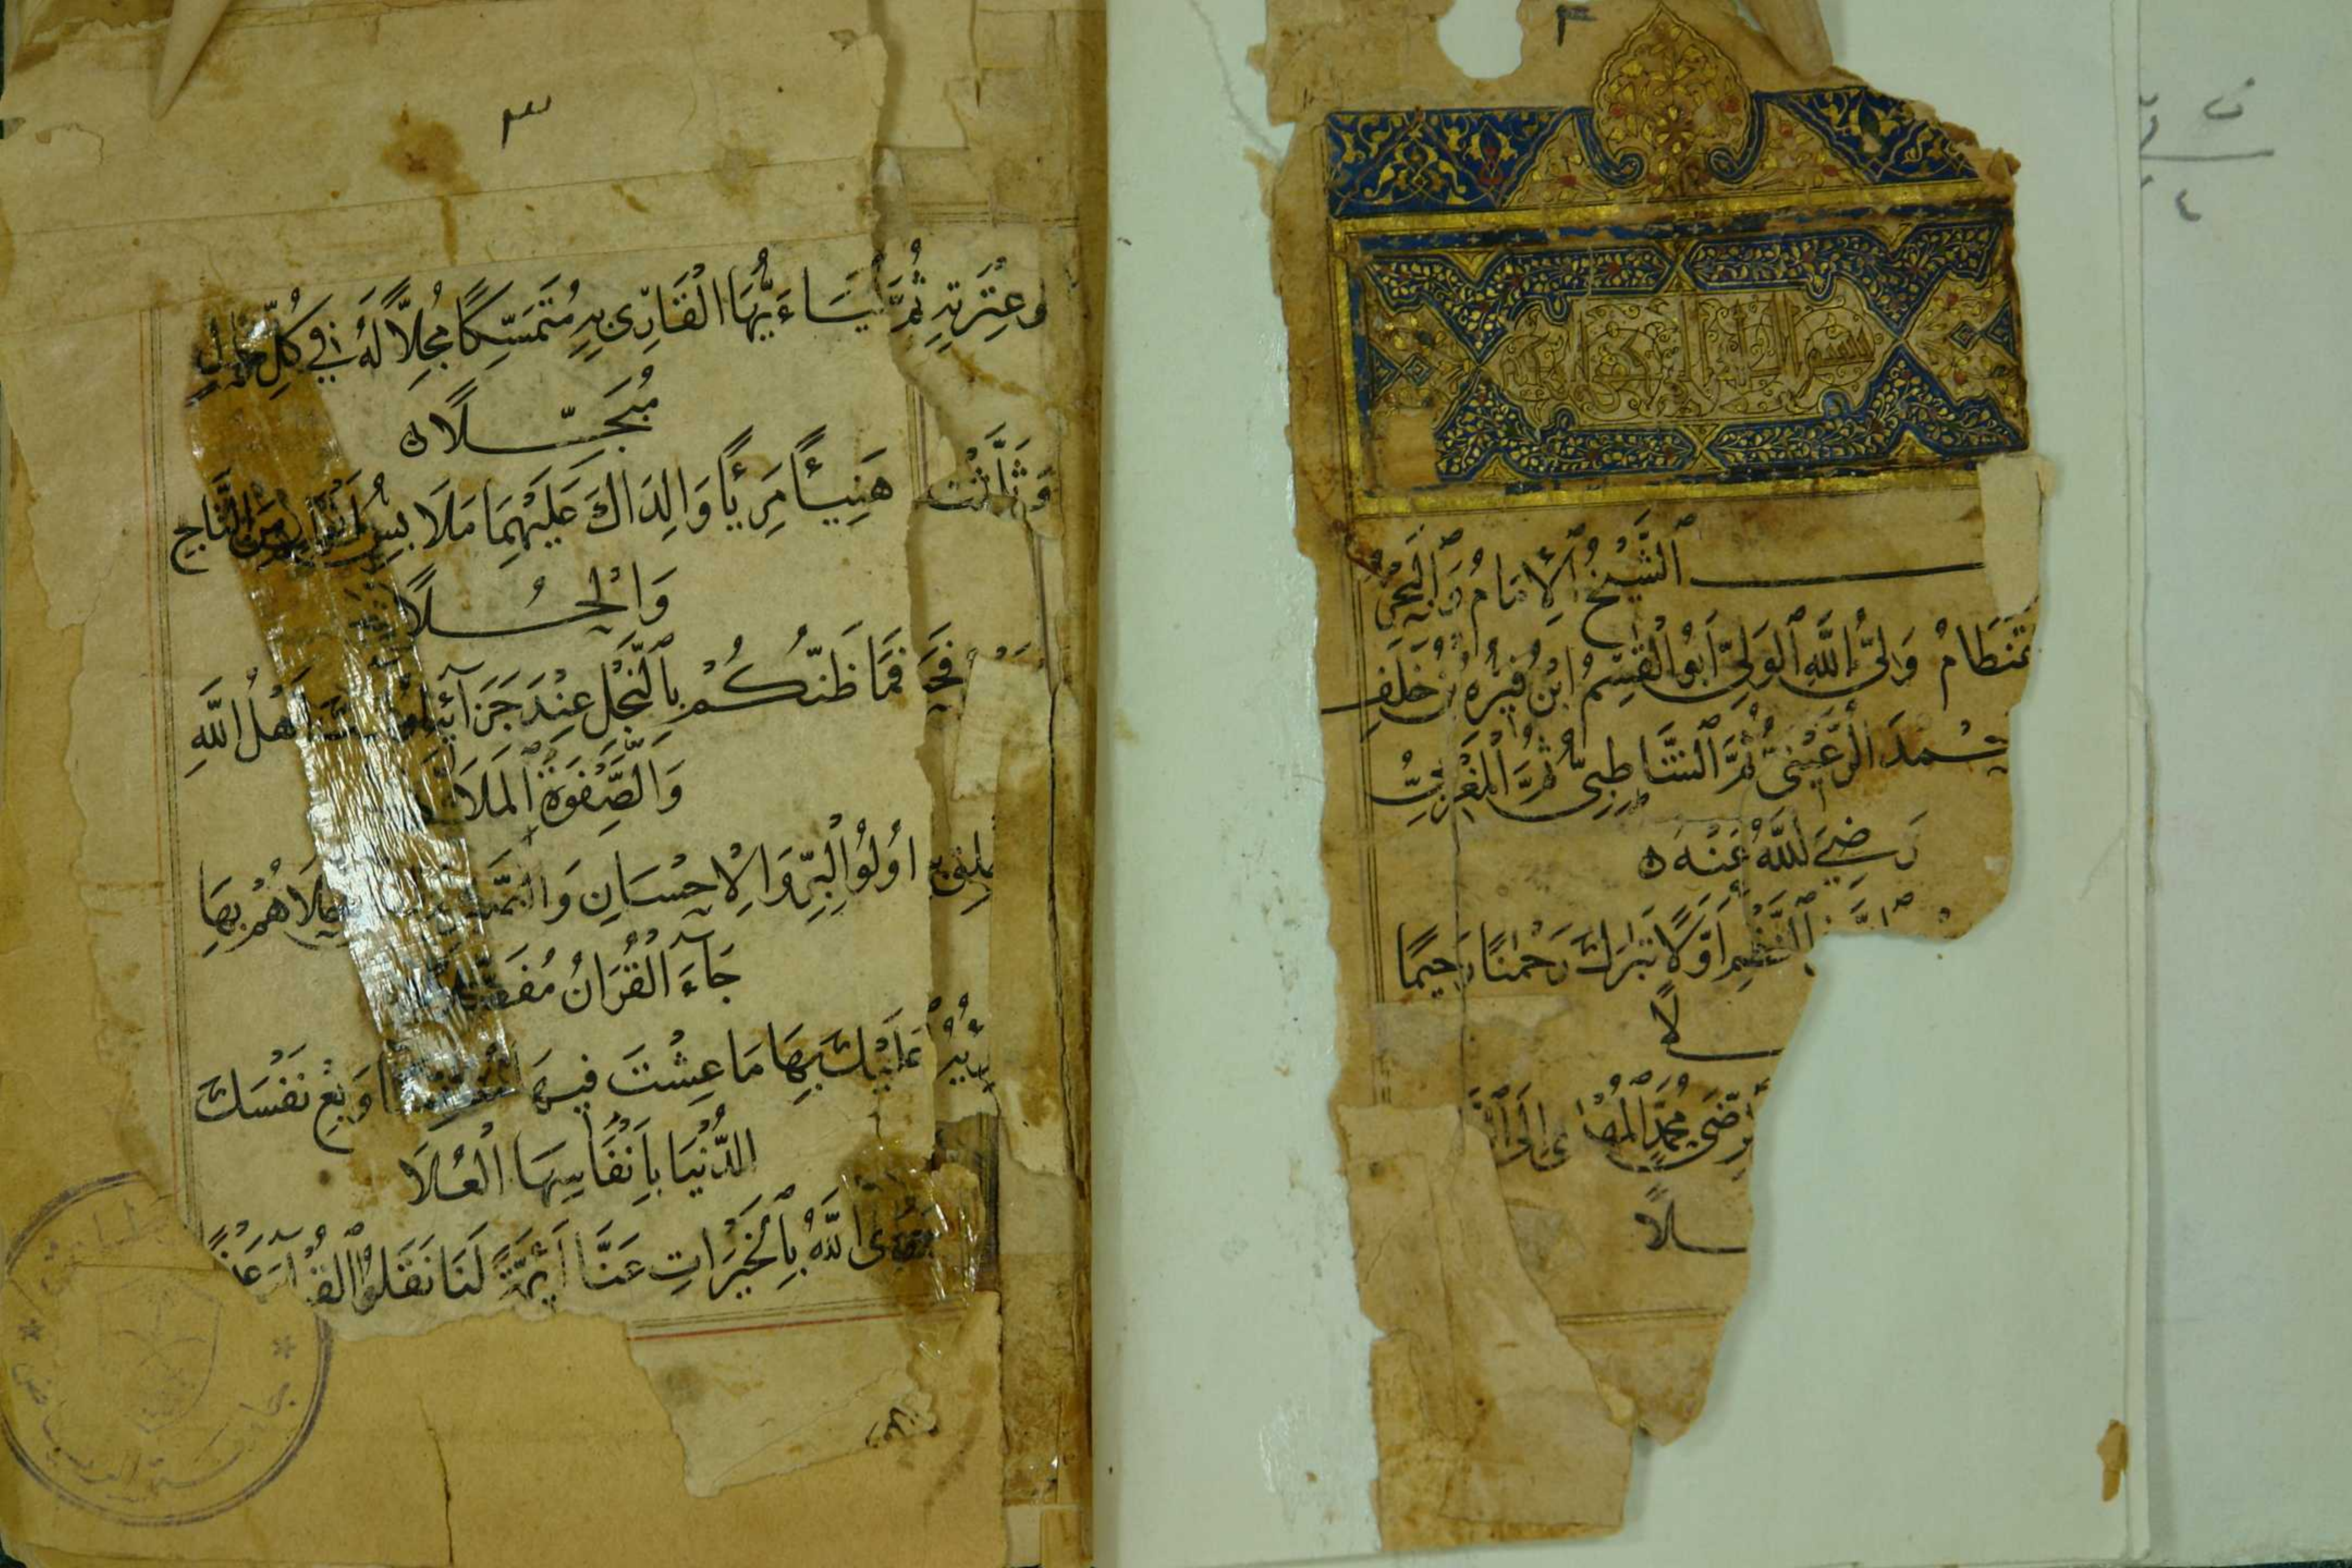 ٢
بسم الله الرحمن الرحيم
ٱلشَّيْخُ ٱلْإِمَامُ وَٱلْبَحْرُ
وَلِيُّ اللَّهِ ٱلْوَلِيِّ أَبُو الْقٰسِمُ ابْنُ فِيرُّهِ بْنُ خَلَفِ
الرُّعَيْنِيُّ ثُمَّ ٱلشَّاطِبِيُّ ثُمَّ ٱلْمَغْرِبِيُّ
رَضِيَ اللَّهُ عَنْهُ
ٱلنَّظْمِ أَوَّلًا تَبَرَكَ رَحْمٰنًا رَحِيمًا
لًا
ٱلرِّضَى مُحَمَّدٍ ٱلْمُهْدٰى إِلَى ٱلنَّ
ـلًا
٣
وَعِتْرَتِهِ ثُمَّ
فَيَـاءَيُّهَا الْقَارِى بِهِ مُتَمَسِّكًا مُجِلًّا لَهُ فِي كُلِّ حَالٍ
مُبَجِّــلًا
وَثَلَّثْتُ
هَنِيـئًا مَرِيئًا وَالِدَاكَ عَلَيْهِمَا مَلَابِسُ أَنْوَارٍ مِنَ التَّاجِ
وَالْحُــلَا
فَمَا ظَنُّكُمْ بِالنَّجْلِ عِنْدَ جَزَآئِهِ أَهْلُ اللَّهِ
وَالصَّفْوَةُ ٱلْمَلَا
أُولُو الْبِرِّ وَالْإِحْسَانِ وَ حُلَاهُمْ بِهَا
جَآءَ الْقُرَانُ مُفَصَّلَا
عَلَيْكَ بِهَا مَا عِشْتَ فِيهَا وَبِعْ نَفْسَكَ
الدُّنْيَا بِأَنْفَاسِهَا الْعُلَا
جَزَى اللَّهُ بِٱلْخَيْرَاتِ عَنَّا أَئِمَّةً لَنَا نَقَلُوا ٱلْقُرْآنَ عَذْبًا
جامعة الرياض